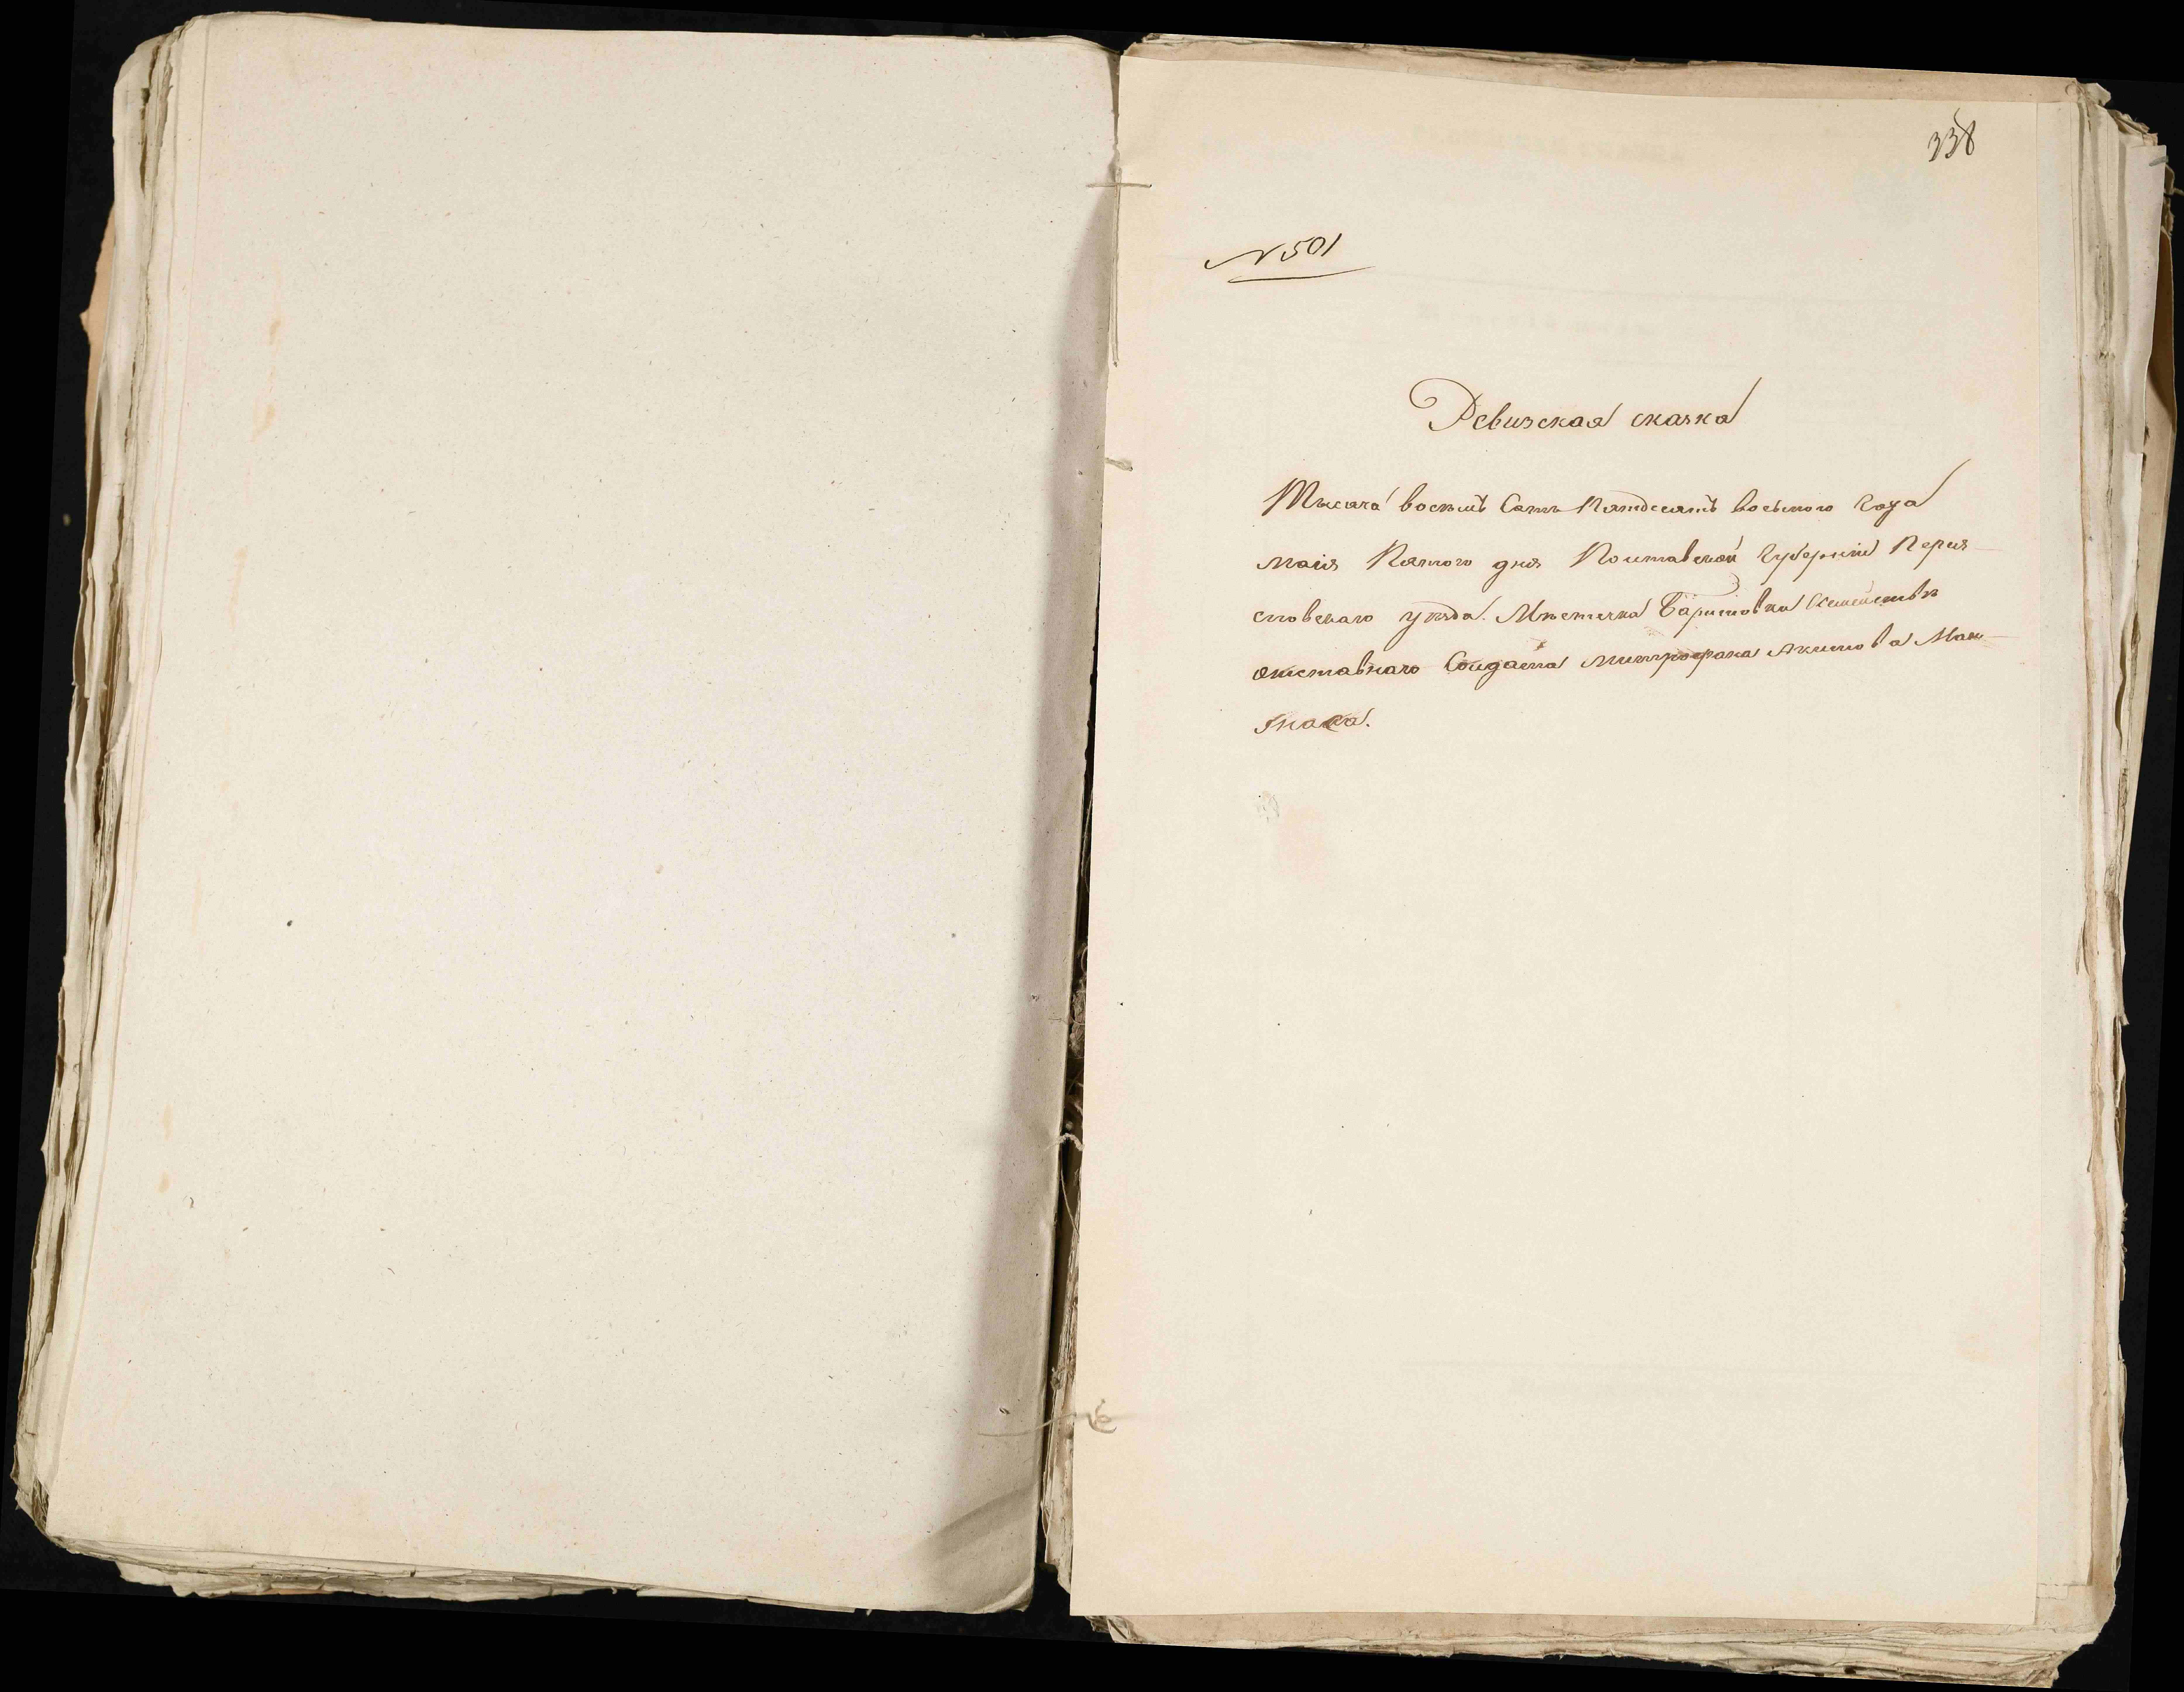 338
N 501
Ревизская сказка
Тысяча восемь Сотъ Пятдесятъ восьмого Года
маія Пятого дня Полтавской Губерніи Перея
словскаго уезда. Местечка Баришовки Семействе
отставнаго Солдата Митрофана Акимова